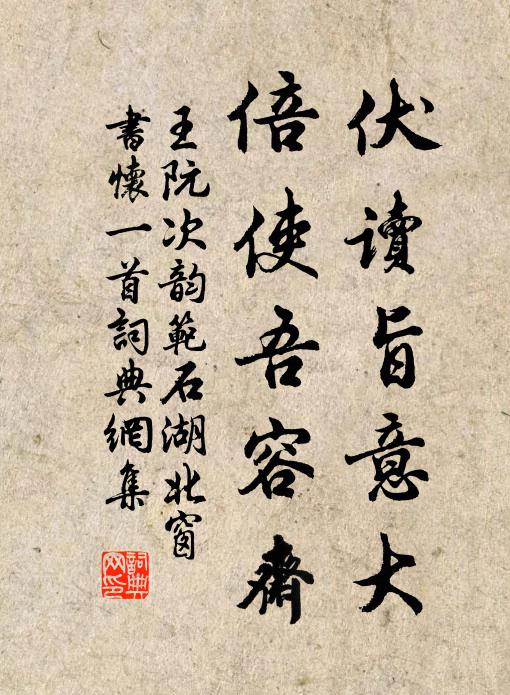 伏讀旨意大
倍使吾容齊
王阮次韵範石湖北窗
書懷一首詞典網集
詞典
网印